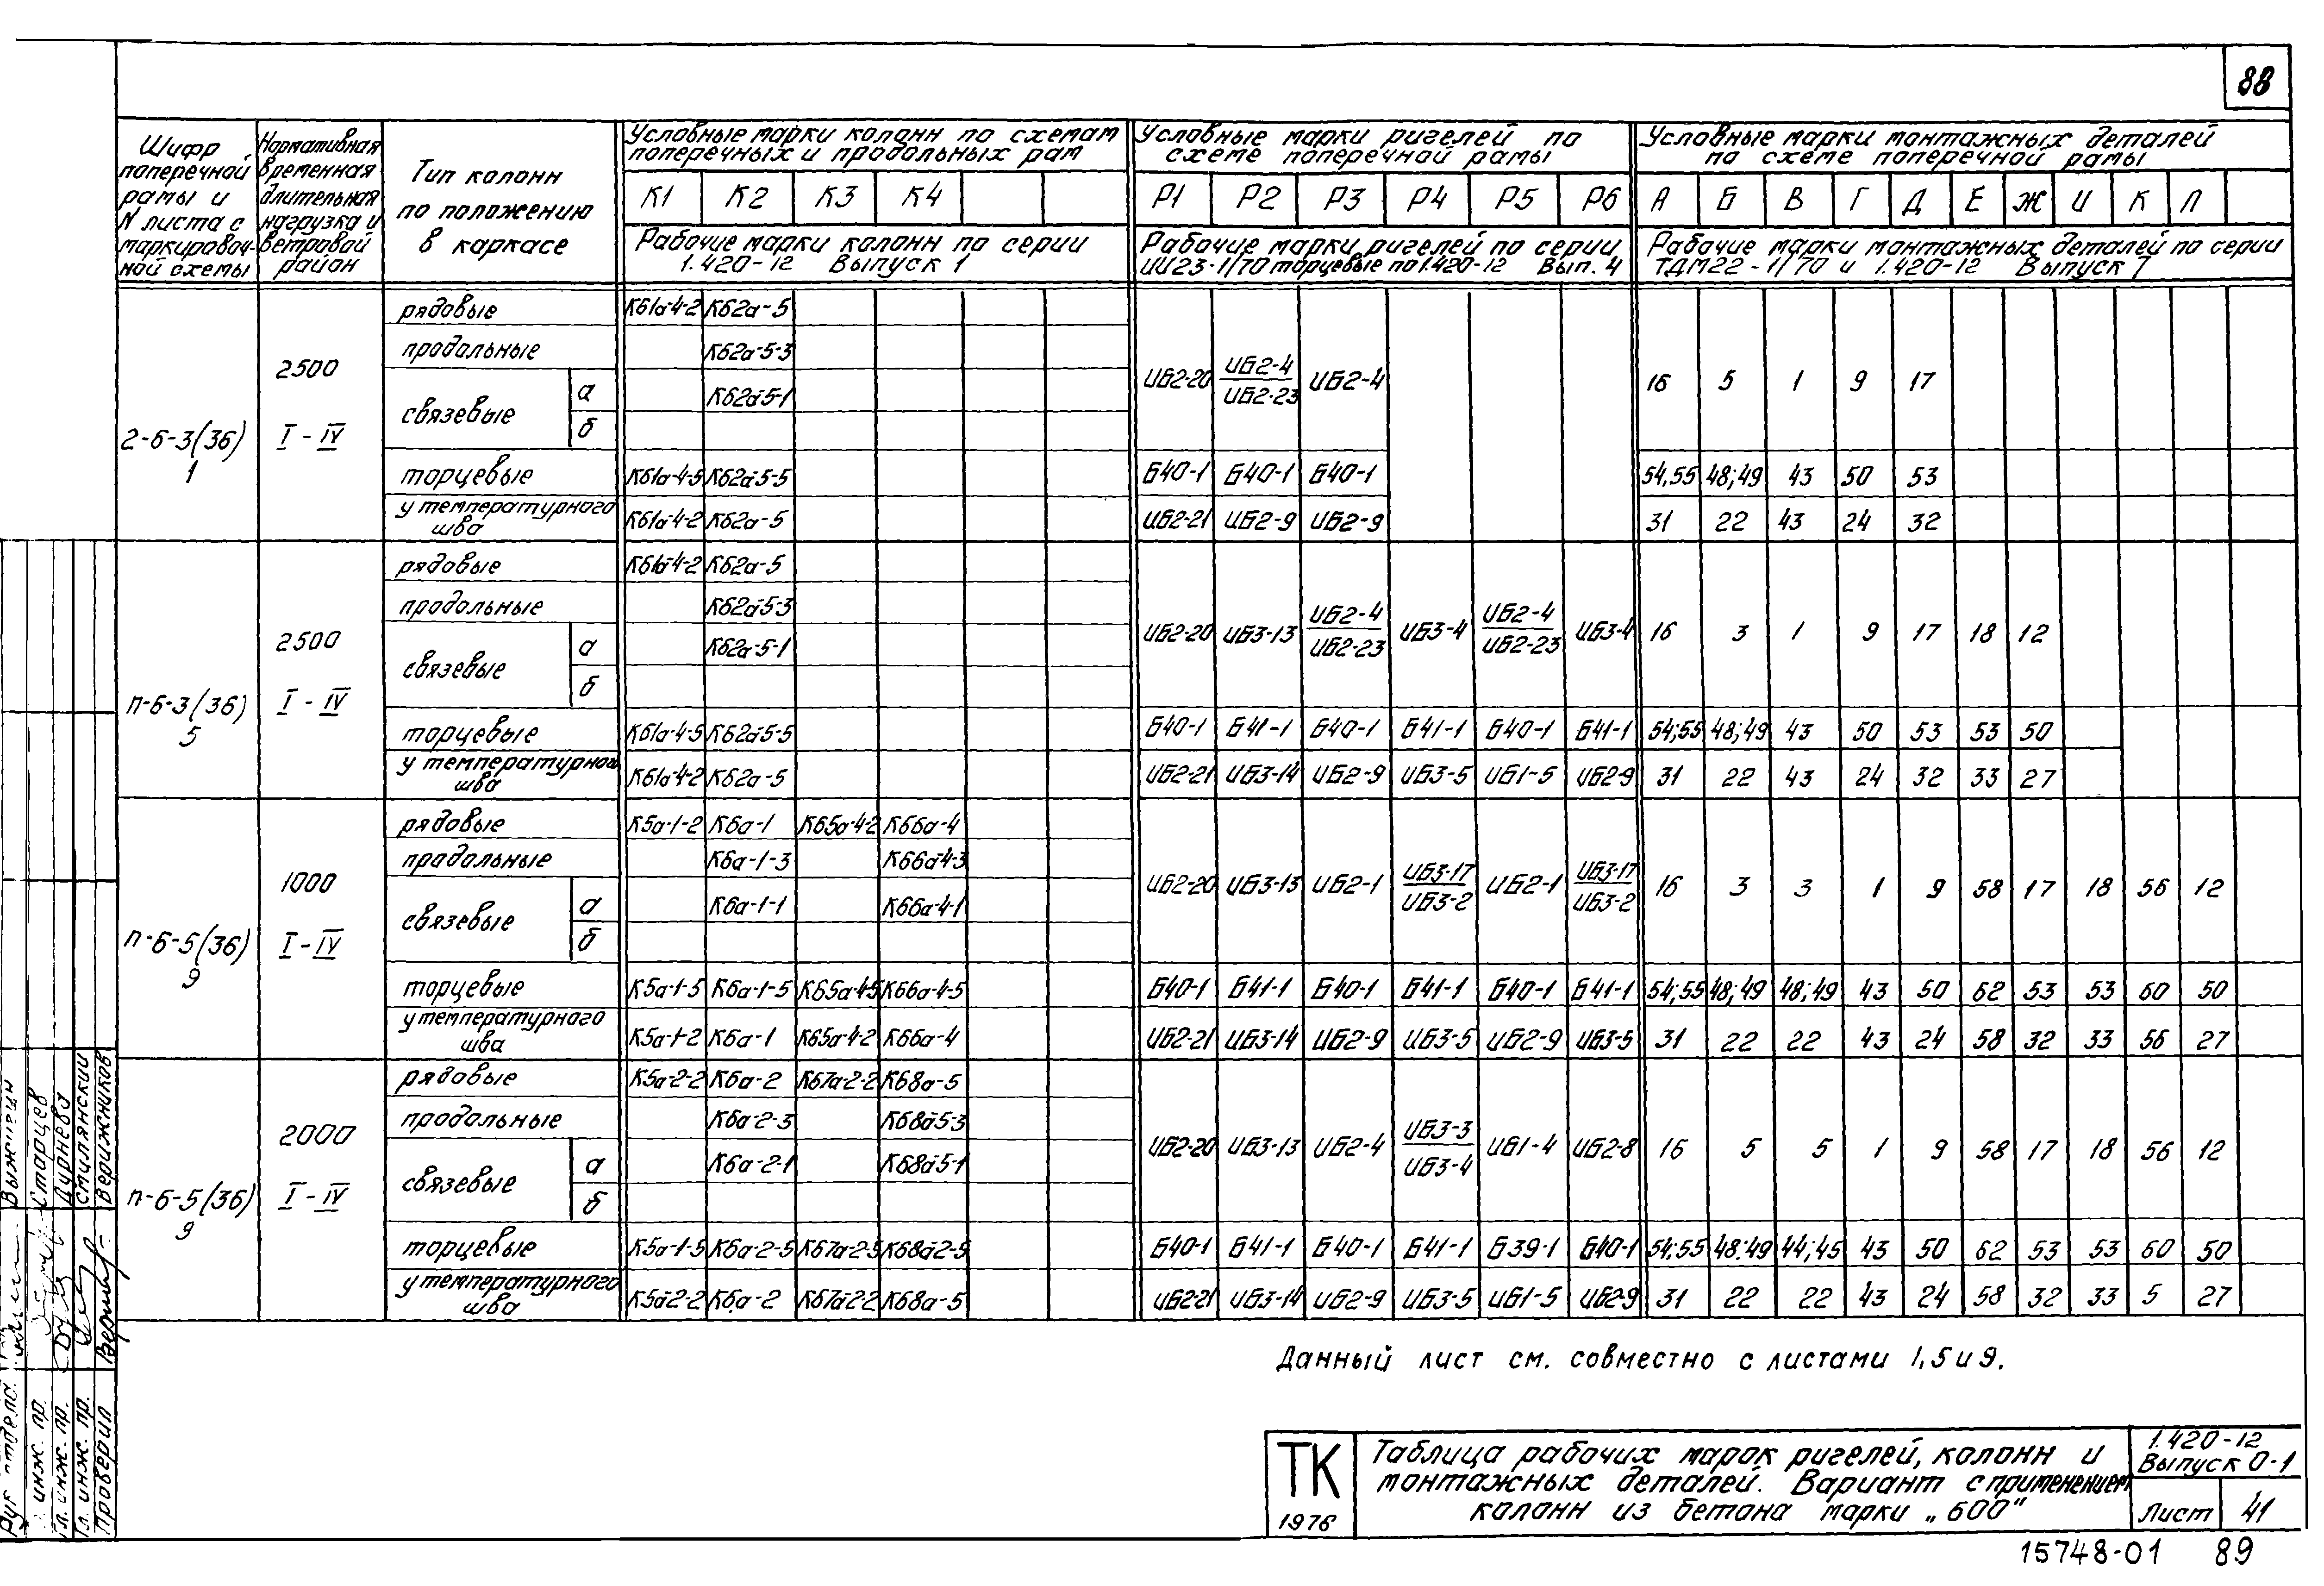 88
Шифр поперечной рамы и N листа с маркировочной схемы
Нормативная временная длительная нагрузка и ветровой район
Тип колонн по положению в каркасе
Условные марки колонн по схемам поперечных и продольных рам
К1 К2 К3 К4
Рабочие марки колонн по серии 1.420-12 Выпуск 1
Условные марки ригелей по схеме поперечной рамы
Р1 Р2 Р3 Р4 Р5 Р6
Рабочие марки ригелей по серии ИИ23-1/70 торцевые по 1.420-12 Вып. 4
Условные марки монтажных деталей по схеме поперечной рамы
А Б В Г Д Е Ж И К Л
Рабочие марки монтажных деталей по серии ТДМ22-1/70 и 1.420-12 Выпуск 7
2-6-3(36) 1
2500 I-IV
рядовые К61а-4-2 К62а-5
продольные К62а-5-3
связевые а К62а-5-1
б
ИБ2-20 ИБ2-4/ИБ2-23 ИБ2-4 16 5 1 9 17
торцевые К61а-4-5 К62а-5-5 Б40-1 Б40-1 Б40-1 54,55 48;49 43 50 53
у температурного шва К61а-4-2 К62а-5 ИБ2-21 ИБ2-9 ИБ2-9 31 22 43 24 32
п-6-3(36) 5
2500 I-IV
рядовые К61а-4-2 К62а-5
продольные К62а-5-3
связевые а К62а-5-1
б
ИБ2-20 ИБ3-13 ИБ2-4/ИБ2-23 ИБ3-4 ИБ2-4/ИБ2-23 ИБ3-4 16 3 1 9 17 18 12
торцевые К61а-4-5 К62а-5-5 Б40-1 Б41-1 Б40-1 Б41-1 Б40-1 Б41-1 54;55 48;49 43 50 53 53 50
у температурного шва К61а-4-2 К62а-5 ИБ2-21 ИБ3-14 ИБ2-9 ИБ3-5 ИБ1-5 ИБ2-9 31 22 43 24 32 33 27
п-6-5(36) 9
1000 I-IV
рядовые К5а-1-2 К6а-1 К65а-4-2 К66а-4
прадольные К6а-1-3 К66а-4-3
связевые а К6а-1-1 К66а-4-1
б
ИБ2-20 ИБ3-13 ИБ2-1 ИБ3-17/ИБ3-2 ИБ2-1 ИБ3-17/ИБ3-2 16 3 3 1 9 58 17 18 56 12
торцевые К5а-1-5 К6а-1-5 К65а-4-5 К66а-4-5 Б40-1 Б41-1 Б40-1 Б41-1 Б40-1 Б41-1 54;55 48;49 48;49 43 50 62 53 53 60 50
у температурного шва К5а-1-2 К6а-1 К65а-4-2 К66а-4 ИБ2-21 ИБ3-14 ИБ2-9 ИБ3-5 ИБ2-9 ИБ3-5 31 22 22 43 24 58 32 33 56 27
п-6-5(36) 9
2000 I-IV
рядовые К5а-2-2 К6а-2 К67а-2-2 К68а-5
продольные К6а-2-3 К68а-5-3
связевые а К6а-2-1 К68а-5-1
б
ИБ2-20 ИБ3-13 ИБ2-4 ИБ3-3/ИБ3-4 ИБ1-4 ИБ2-8 16 5 5 1 9 58 17 18 56 12
торцевые К5а-1-5 К6а-2-5 К67а-2-5 К68а-2-5 Б40-1 Б41-1 Б40-1 Б41-1 Б39-1 Б40-1 54;55 48:49 44;45 43 50 62 53 53 60 50
у температурного шва К5а-2-2 К6а-2 К67а-2-2 К68а-5 ИБ2-21 ИБ3-14 ИБ2-9 ИБ3-5 ИБ1-5 ИБ2-9 31 22 22 43 24 58 32 33 5 27
Данный лист см. совместно с листами 1,5 и 9.
ТК
1976
Таблица рабочих марок ригелей, колонн и
монтажных деталей. Вариант с применением
колонн из бетона марки „600"
1.420-12
Выпуск 0-1
Лист 41
15748-01 89
Выжигин
инж. пр. Старцев
Гл. инж. пр. Дурнева
Гл. инж. пр. Смилянский
Проверил Верижников